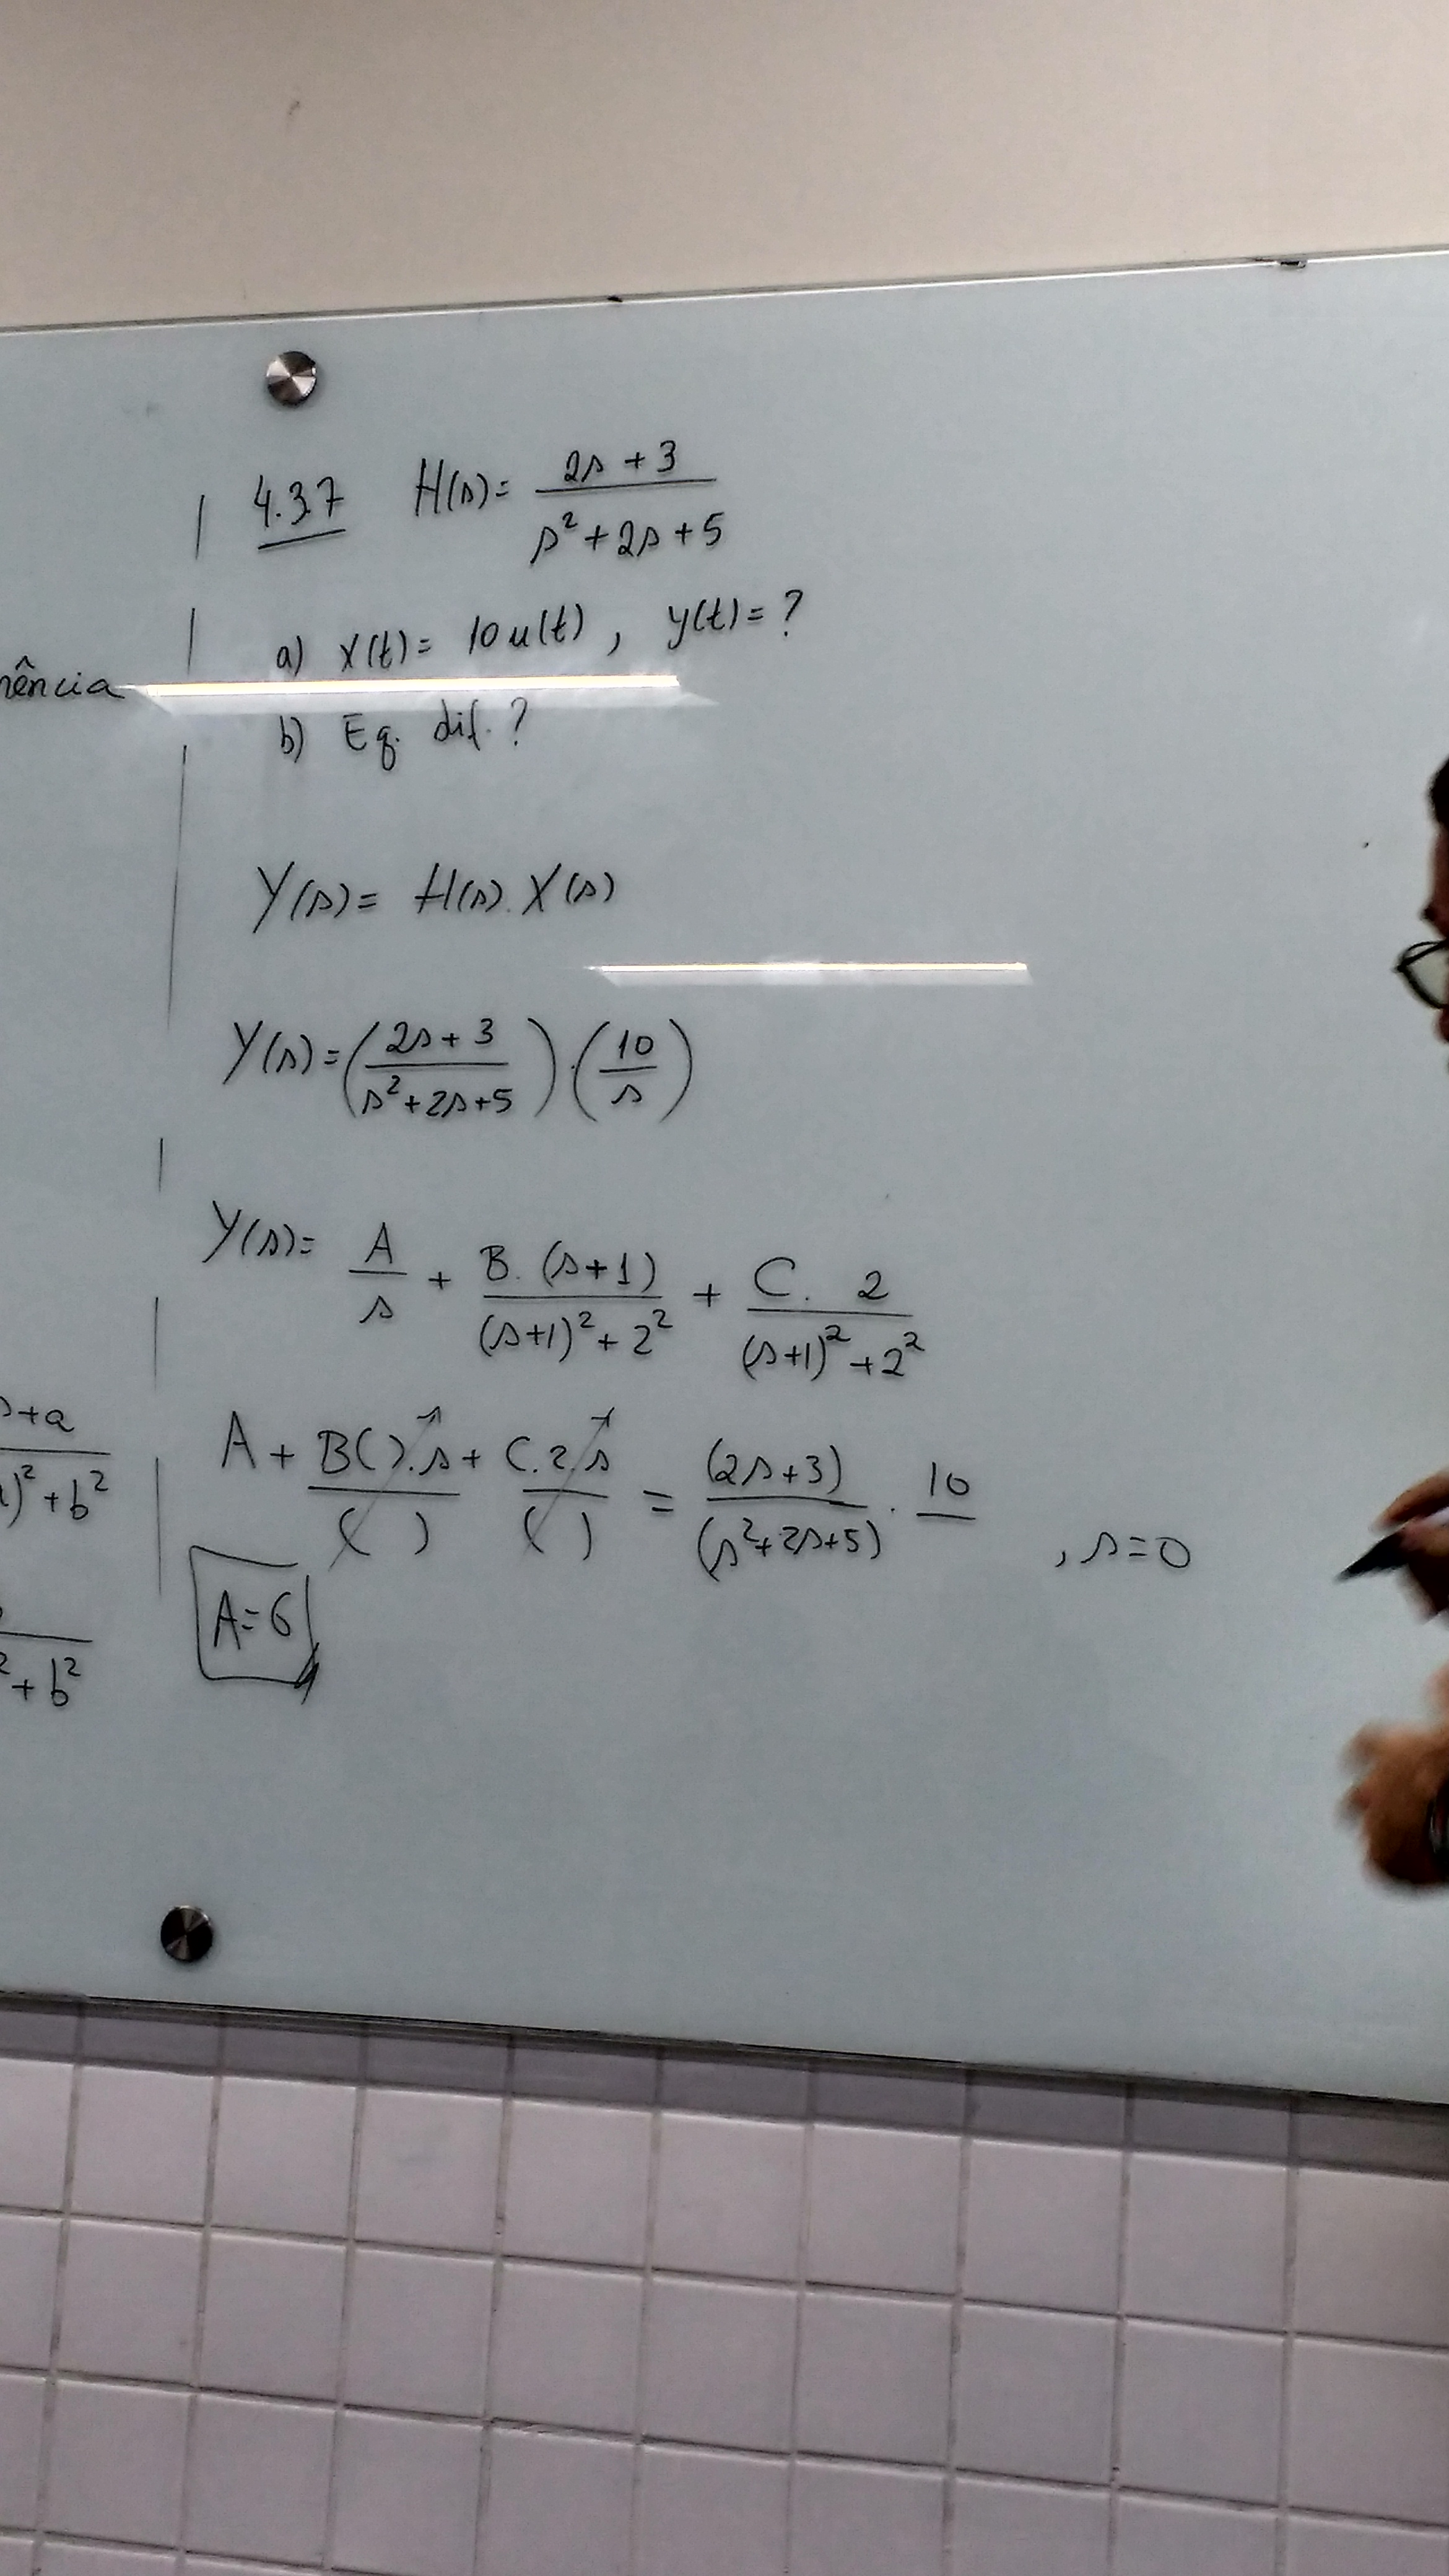 nência
s+a
)²+b²
²+b²
4.37 H(s)= 2s+3
s²+2s+5
a) x(t)= 10u(t), y(t)=?
b) Eq. dif.?
Y(s)= H(s).X(s)
Y(s)=(2s+3 / s²+2s+5).(10 / s)
Y(s)= A/s + B.(s+1) / (s+1)²+2² + C. 2 / (s+1)²+2²
A + B( ).s / ( ) + C.2.s / ( ) = (2s+3) / (s²+2s+5) . 10 , s=0
A=6